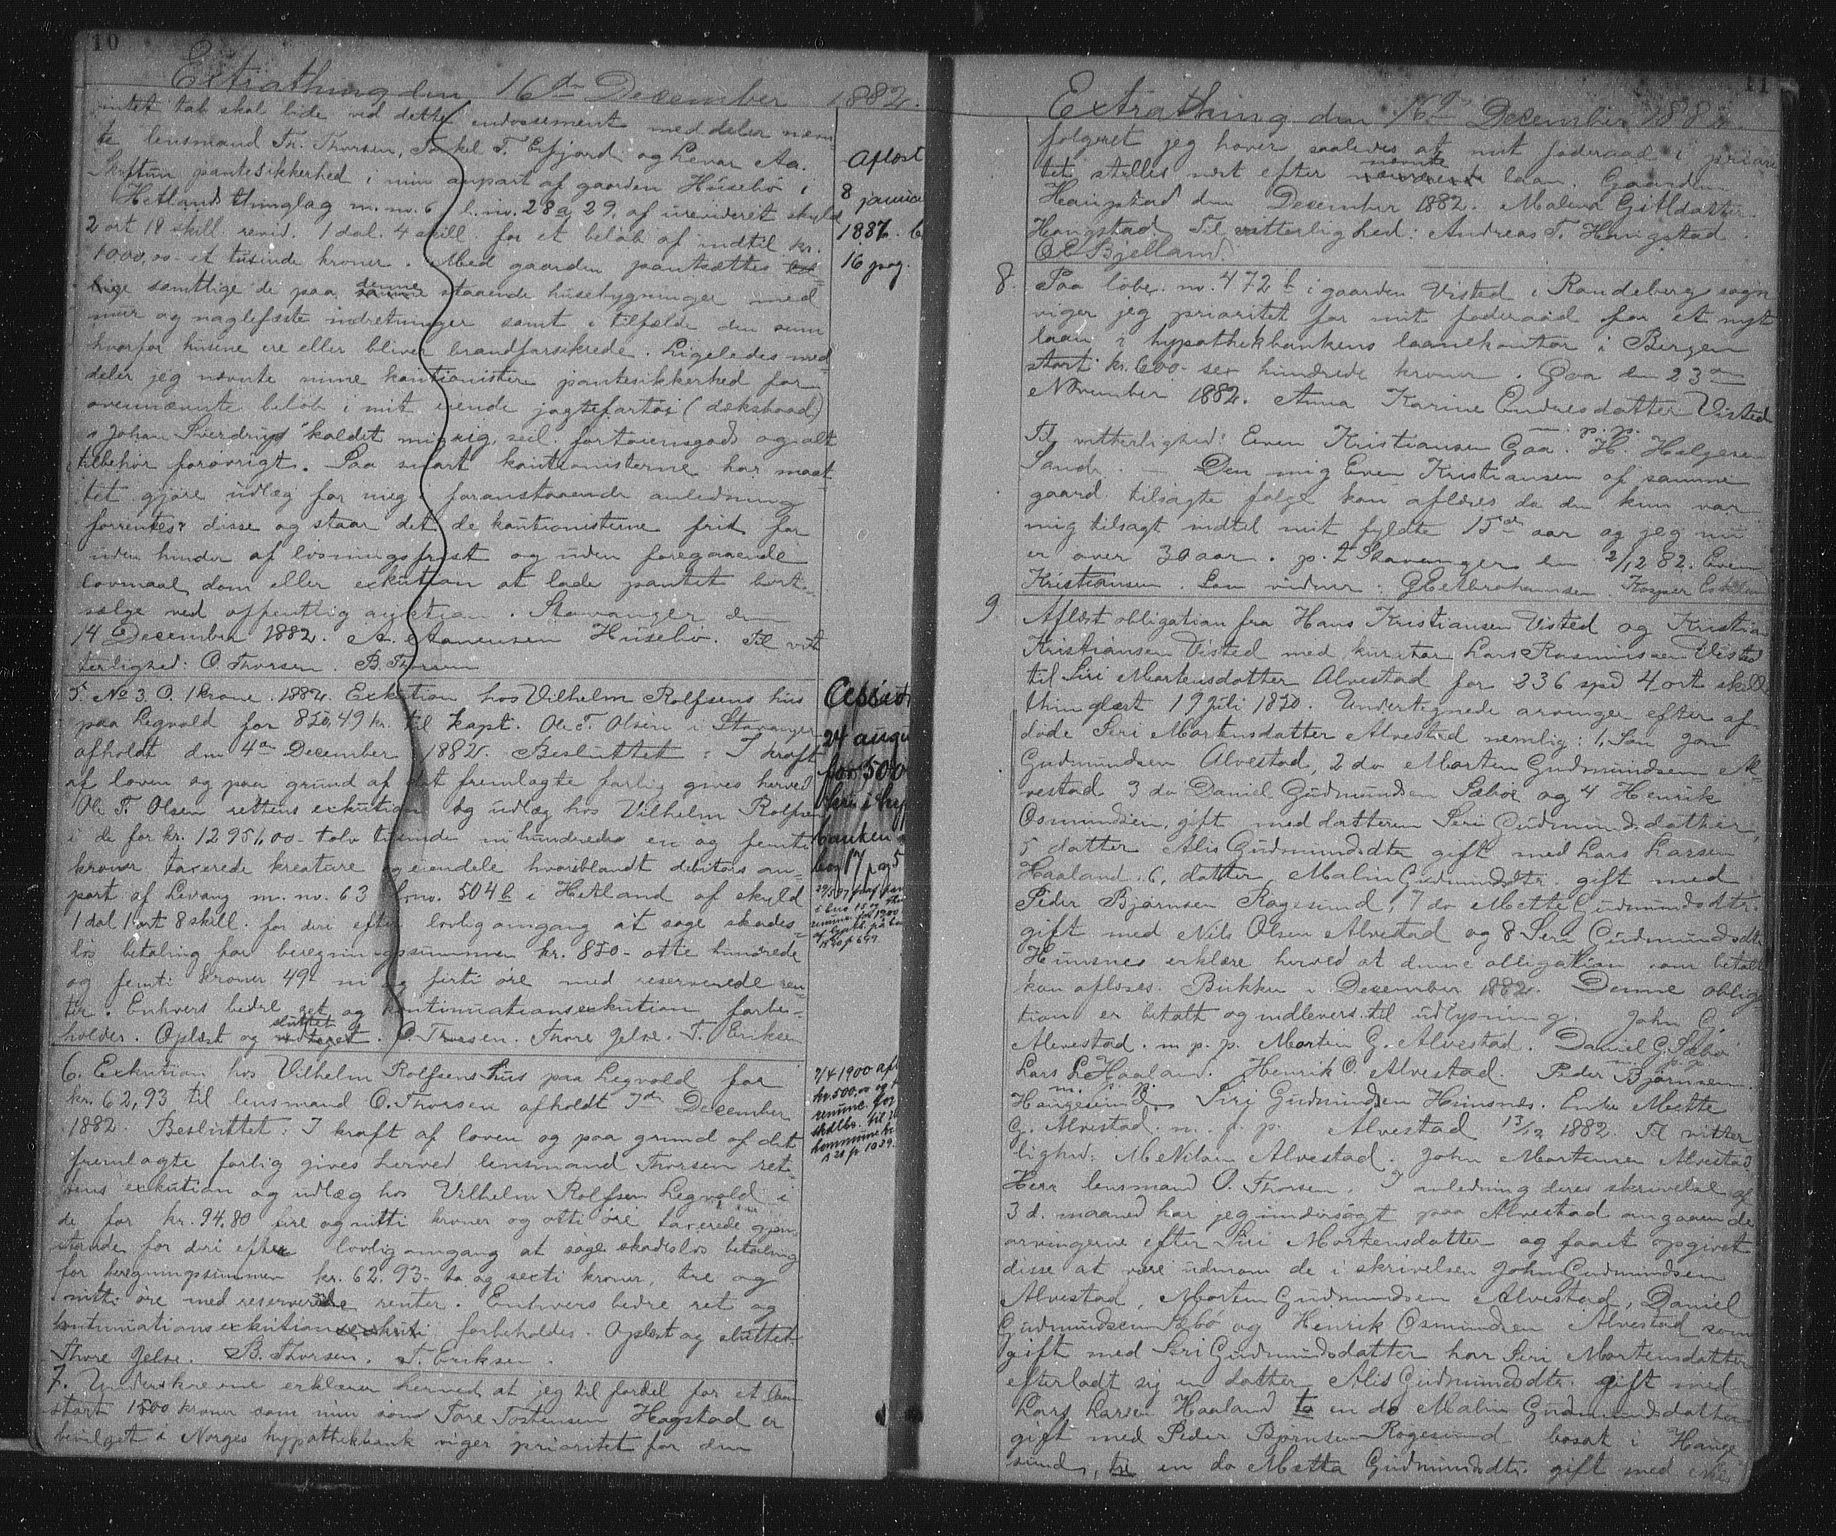 10
Extrathing den 16de December 1882.
intet tab skal lide ved dette endossement meddeler nævn
te lensmand Th. Thorsen, Torkel T. Erfjord og Levar Aa.
pantesikkerhed i min anpart af gaarden Husebø i
Hetlands thinglag m. nv. 6 l. nv. 28a 29, af urevideret skyld
2 ort 18 skill. revid. 1 dal. 4 skill. for et beløb af indtil kr.
1000,00 et tusinde kroner. Med gaarden pantsættes
samtlige de paa denne staaende husebygninger med
mur og naglefæste indretninger samt i tilfælde den sum
hvorfor husene ere eller bliver brandforsikrede. Ligeledes med-
deler jeg nævnte mine kautionister pantesikkerhed for
ovennævnte beløb i mit eiende jagtefartøi (dæksbaad)
"Johan Sverdrup" kaldet migrig, seil. fortøiensgods og alt
tilbehør forøvrigt. Saa snart kautionisterne har maat-
tet gjøre udlæg for meg i foranstaaende anledning
forrentes disse og staar det de kautionisterne frit for
uden hinder af løsningsfrist og uden foregaaende
lovmaal dom eller exkution at lade pantet bort-
sælge ved offentlig auktion. Stavanger den
14 December 1882. A. Asmensen Husebø. Til vit
terlighed: O. Thorsen. B. Thorsen
Aflæst
8 januar
1887. b
16 pag.
5. No 3 O. 1 krone. 1882. Exkution hos Vilhelm Rolfsens hus
paa Legvold for 850,49 kr. til kapt. Ole T. Olsen i Stavanger
afholdt den 4de December 1882. Besluttet: I kraft
af loven og paa grund af det fremlagte forlig gives herved
Ole T. Olsen rettens exkution og udlæg hos Vilhelm Rolfsen
i de for kr. 12951,00 tolv tusinde nihundrede en og femti
kroner taxerede kreature og eiendele hvoriblandt debitors an-
part af Levang m. nv. 63 l. nv. 504b i Hetland af skyld
1 dal 1 ort 8 skill. for deri efter lovlig omgang at søge skades-
løs betaling for beregningssummen kr. 850- otte hundrede
og femti kroner 49 ni og firti øre med reserverede ren-
ter. Enhvers bedre ret og kontinuationsexkution forbe-
holdes. Oplæst og sluttet. O. Thorsen. Thore Jelse. T. Eriksen
Cessiot
24 augu
for 500
kr. i hyp
banken
bog 17 pag 5
6. Exkution hos Vilhelm Rolfsens hus paa Legvold for
kr. 62,93 til lensmand O. Thorsen afholdt 7de December
1882. Besluttet: I kraft af loven og paa grund af det
fremlagte forlig gives herved lensmand Thorsen ret-
tens exkution og udlæg hos Vilhelm Rolfsen Legvold i
de for kr. 94,80 fire og nitti kroner og otti øre taxerede gjen-
stande for deri efter lovlig omgang at søge skadesløs betaling
for beregningssummen kr. 62.93- to og sexti kroner, tre og
nitti øre med reserverede renter. Enhvers bedre ret og
kontinuationsexkution forbeholdes. Oplæst og sluttet.
Thore Jelse. B. Thorsen. T. Eriksen.
7/4 1900 afl
kr. 500.00 og
renune for
skdlbr. til
kommune kr
n 20 p 1029.
7. Underskrevne erklærer herved at jeg til fordel for et laan
stort 1500 kroner som min søn Tore Tostensen Hagstad er
bevilget i Norges hypothekbank viger prioritet for den
11
Extrathing den 16de December 1882.
folgeret jeg haver saaledes at mit føderaad i priori
tet stilles næst efter nævnte laan. Gaarden
Haugstad den December 1882. Malena Gitledatter
Haugstad. Til vitterlighed: Andreas T. Haugstad.
O E Bjelland.
8. Paa løbe nv. 472b i gaarden Visted i Randeberg sogn
viger jeg prioritet for mit føderaad for et nyt
laan i hypothekbankens laanekontor i Bergen
stort kr. 600- sex hundrede kroner. Goa den 23de
November 1882. Anna Karine Endresdatter Visted
m. p. p.
Til vitterlighed: Even Kristiansen Goa. H. Helgesen
Sande. — Den mig Even Kristiansen af samme
gaard tilsagte følge kan aflæses da den kun var
mig tilsagt indtil mit fyldte 15de aar og jeg nu
er over 30 aar. p. t. Stavanger den 2/12 82. Even
Kristiansen. Som vidner: G Abrahamsen. Kasper
9. Aflæst obligation fra Hans Kristiansen Visted og Kristian
Kristiansen Visted med kurator Lars Rasmussen Visted
til Siri Mortensdatter Alvestad for 236 spd 4 ort skill
thinglæst 19 juli 1850. Undertegnede arvinger efter af-
døde Siri Mortensdatter Alvestad nemlig: 1, Søn Jon
Gudmundsen Alvestad, 2 do Morten Gudmundsen Al-
vestad 3 do Daniel Gudmundsen Sæbø og 4 Henrik
Osmundsen gift med datteren Seri Gudmundsdatter,
5 datter Alis Gudmundsdtr gift med Lars Larsen
Haaland. 6, datter Malin Gudmundsdtr. gift med
Peder Bjørnsen Røgesund, 7 do Mette Gudmundsdtr.
gift med Nils Olsen Alvestad og 8 Seri Gudmundsdtr
Hunsnes erklære herved at denne obligation som betalt
kan aflæses. Bukken i December 1882. Denne obliga-
tion er betalt og indlevers til udlysning. John G.
Alvestad. m. p. p. Morten G. Alvestad. Daniel G. Sæbø
m. p. p.
Lars L. Haaland. Henrik O. Alvestad. Peder Bjørnsen
m. p. p.
Haugesund. Siri Gudmundsen Hunsnes. Enke Mette
G. Alvestad. m. p. p. Alvestad 13/12 1882. Til vitter
lighed: M Nilsen Alvestad. John Mortensen Alvestad
Herr lensmand O. Thorsen. I anledning deres skrivelse af
3 d. maaned har jeg undersøgt paa Alvestad angaaende
arvingerne efter Siri Mortensdatter og faaet opgivet
disse at være udenom de i skrivelsen John Gudmundsen
Alvestad, Morten Gudmundsen Alvestad, Daniel
Gudmundsen Sæbø og Henrik Osmundsen Alvestad som
gift med Seri Gudmundsdatter har Siri Mortensdatter
efterladt sig en datter Alis Gudmundsdtr. gift med
Lars Larsen Haaland to en do Malin Gudmundsdatter
gift med Peder Bjørnsen Røgesund bosat i Hauge
sund, tre en do Metta Gudmundsdtr. gift med Nils